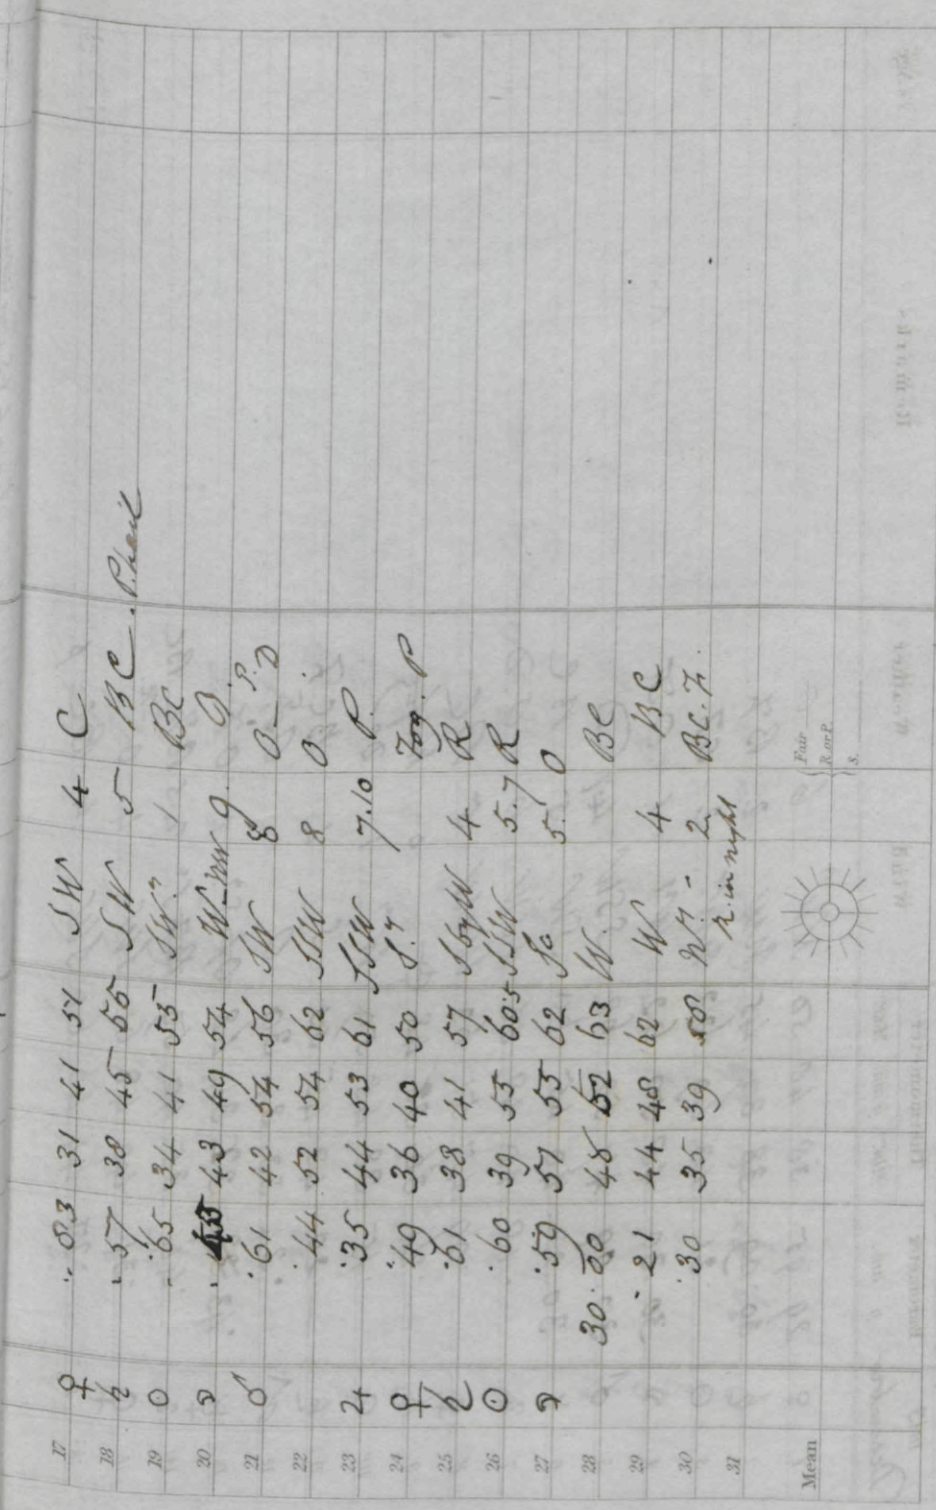 17 ♀ .83 31 41 51 SW 4 C
18 ♄ .57 38 45 55 SW 5 BC. P. hail
19 ☉ .65 34 41 55 SW.y 1 BC
20 ☽ 43 49 54 W_NW 9. O.
21 ♂ .61 42 54 56 SW 8 O._P.D
22 .44 52 54 62 SSW 8 O.
23 ♃ .35 44 53 61 SSW 7.10 P.
24 ♀ .49 36 40 50 S.y Fog. P
25 ♄ .61 38 41 57 SbyW 4 R
26 ☉ .60 39 55 60.5 SSW 5.7 R
27 ☽ .59 51 55 62 So 5. O
28 30. 48 52 63 W. BC
29 .21 44 48 62 W 4 BC
30 .30 35 39 58 W.y - 2. BC. F.
31 R. in night
Mean { Fair
R. or P.
S.